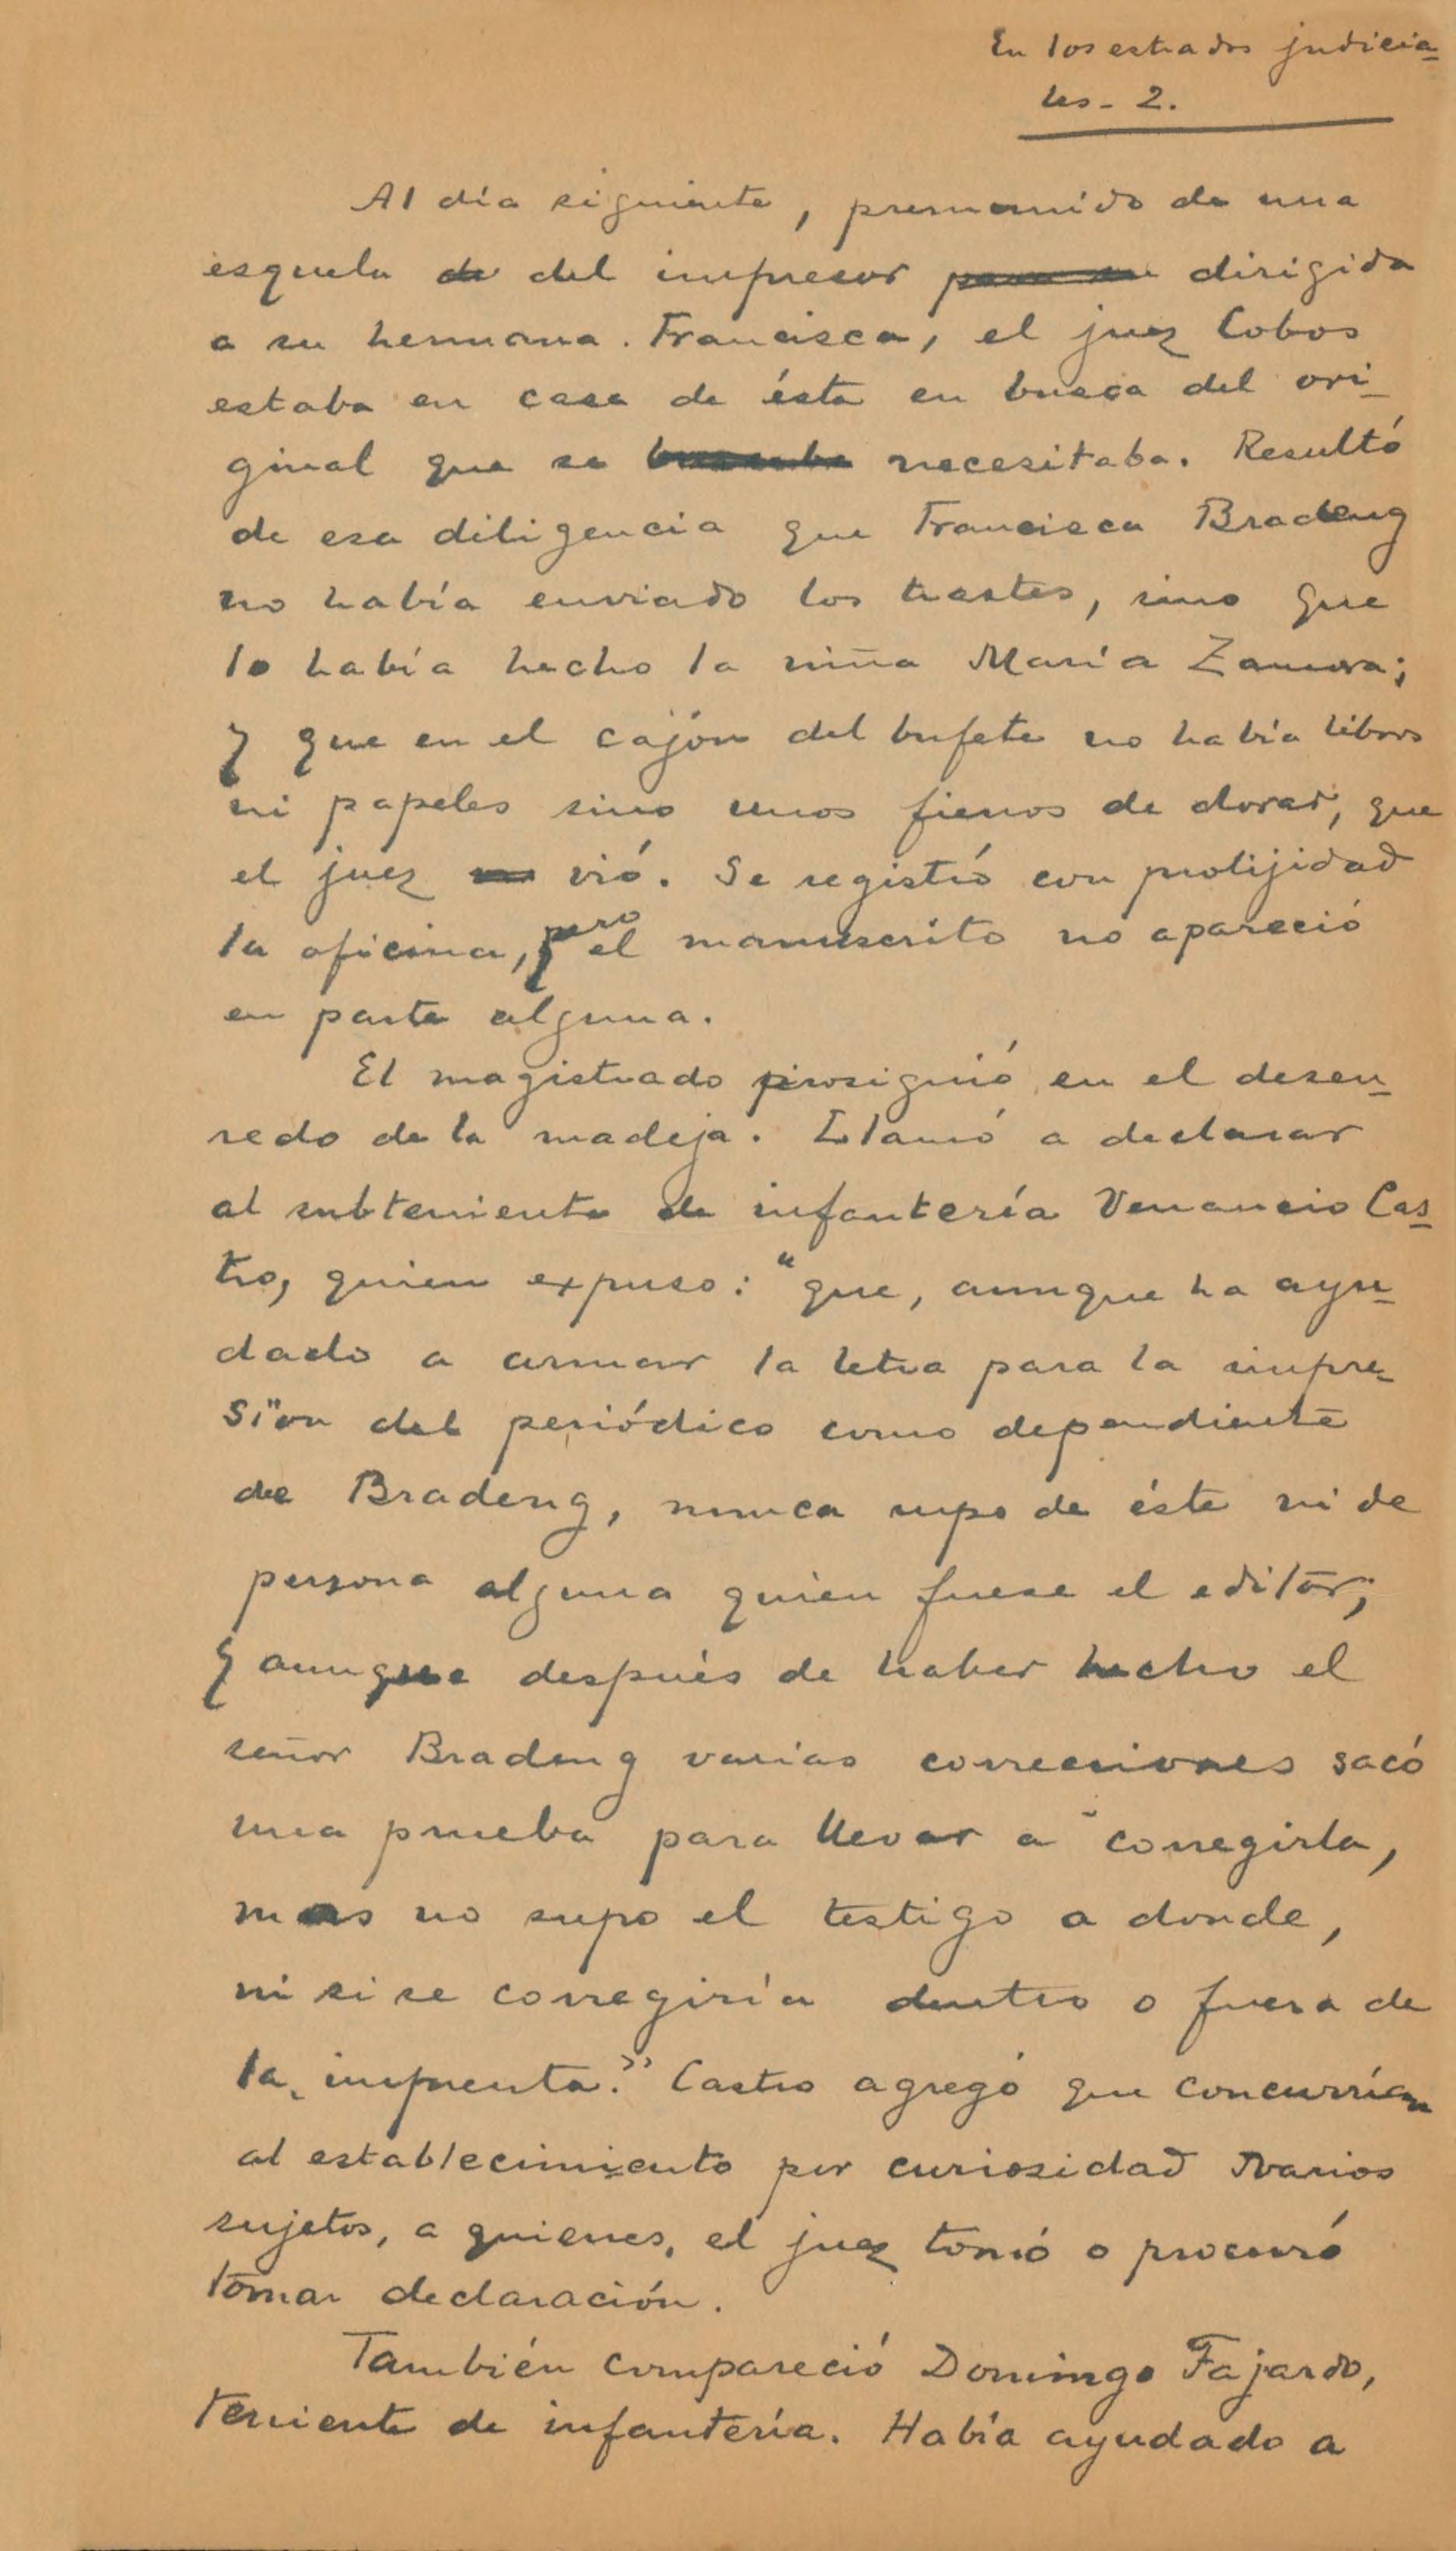 En los estrados judicia-
les - 2.
Al día siguiente, premunido de una
esquela de del impresor para su dirigida
a su hermana. Francisca, el juez Cobos
estaba en casa de ésta en busca del ori-
ginal que se buscaba necesitaba. Resultó
de esa diligencia que Francisca Bradeng
no había enviado los trastes, sino que
lo había hecho la niña María Zamora;
y que en el cajón del bufete no había libros
ni papeles sino unos fierros de dorar, que
el juez vió. Se registró con prolijidad
la oficina, pero el manuscrito no apareció
en parte alguna.
El magistrado prosiguió en el desen-
redo de la madeja. Llamó a declarar
al subteniente de infantería Venancio Cas-
tro, quien expuso: "que, aunque ha ayu-
dado a armar la letra para la impre-
sión del periódico como dependiente
de Bradeng, nunca supo de éste ni de
persona alguna quien fuese el editor;
y aunque después de haber hecho el
señor Bradeng varias correcciones sacó
una prueba para llevar a corregirla,
mas no supo el testigo a donde,
ni si se corregiría dentro o fuera de
la imprenta." Castro agregó que concurrían
al establecimiento por curiosidad varios
sujetos, a quienes, el juez tomó o procuró
tomar declaración.
También compareció Domingo Fajardo,
teniente de infantería. Había ayudado a